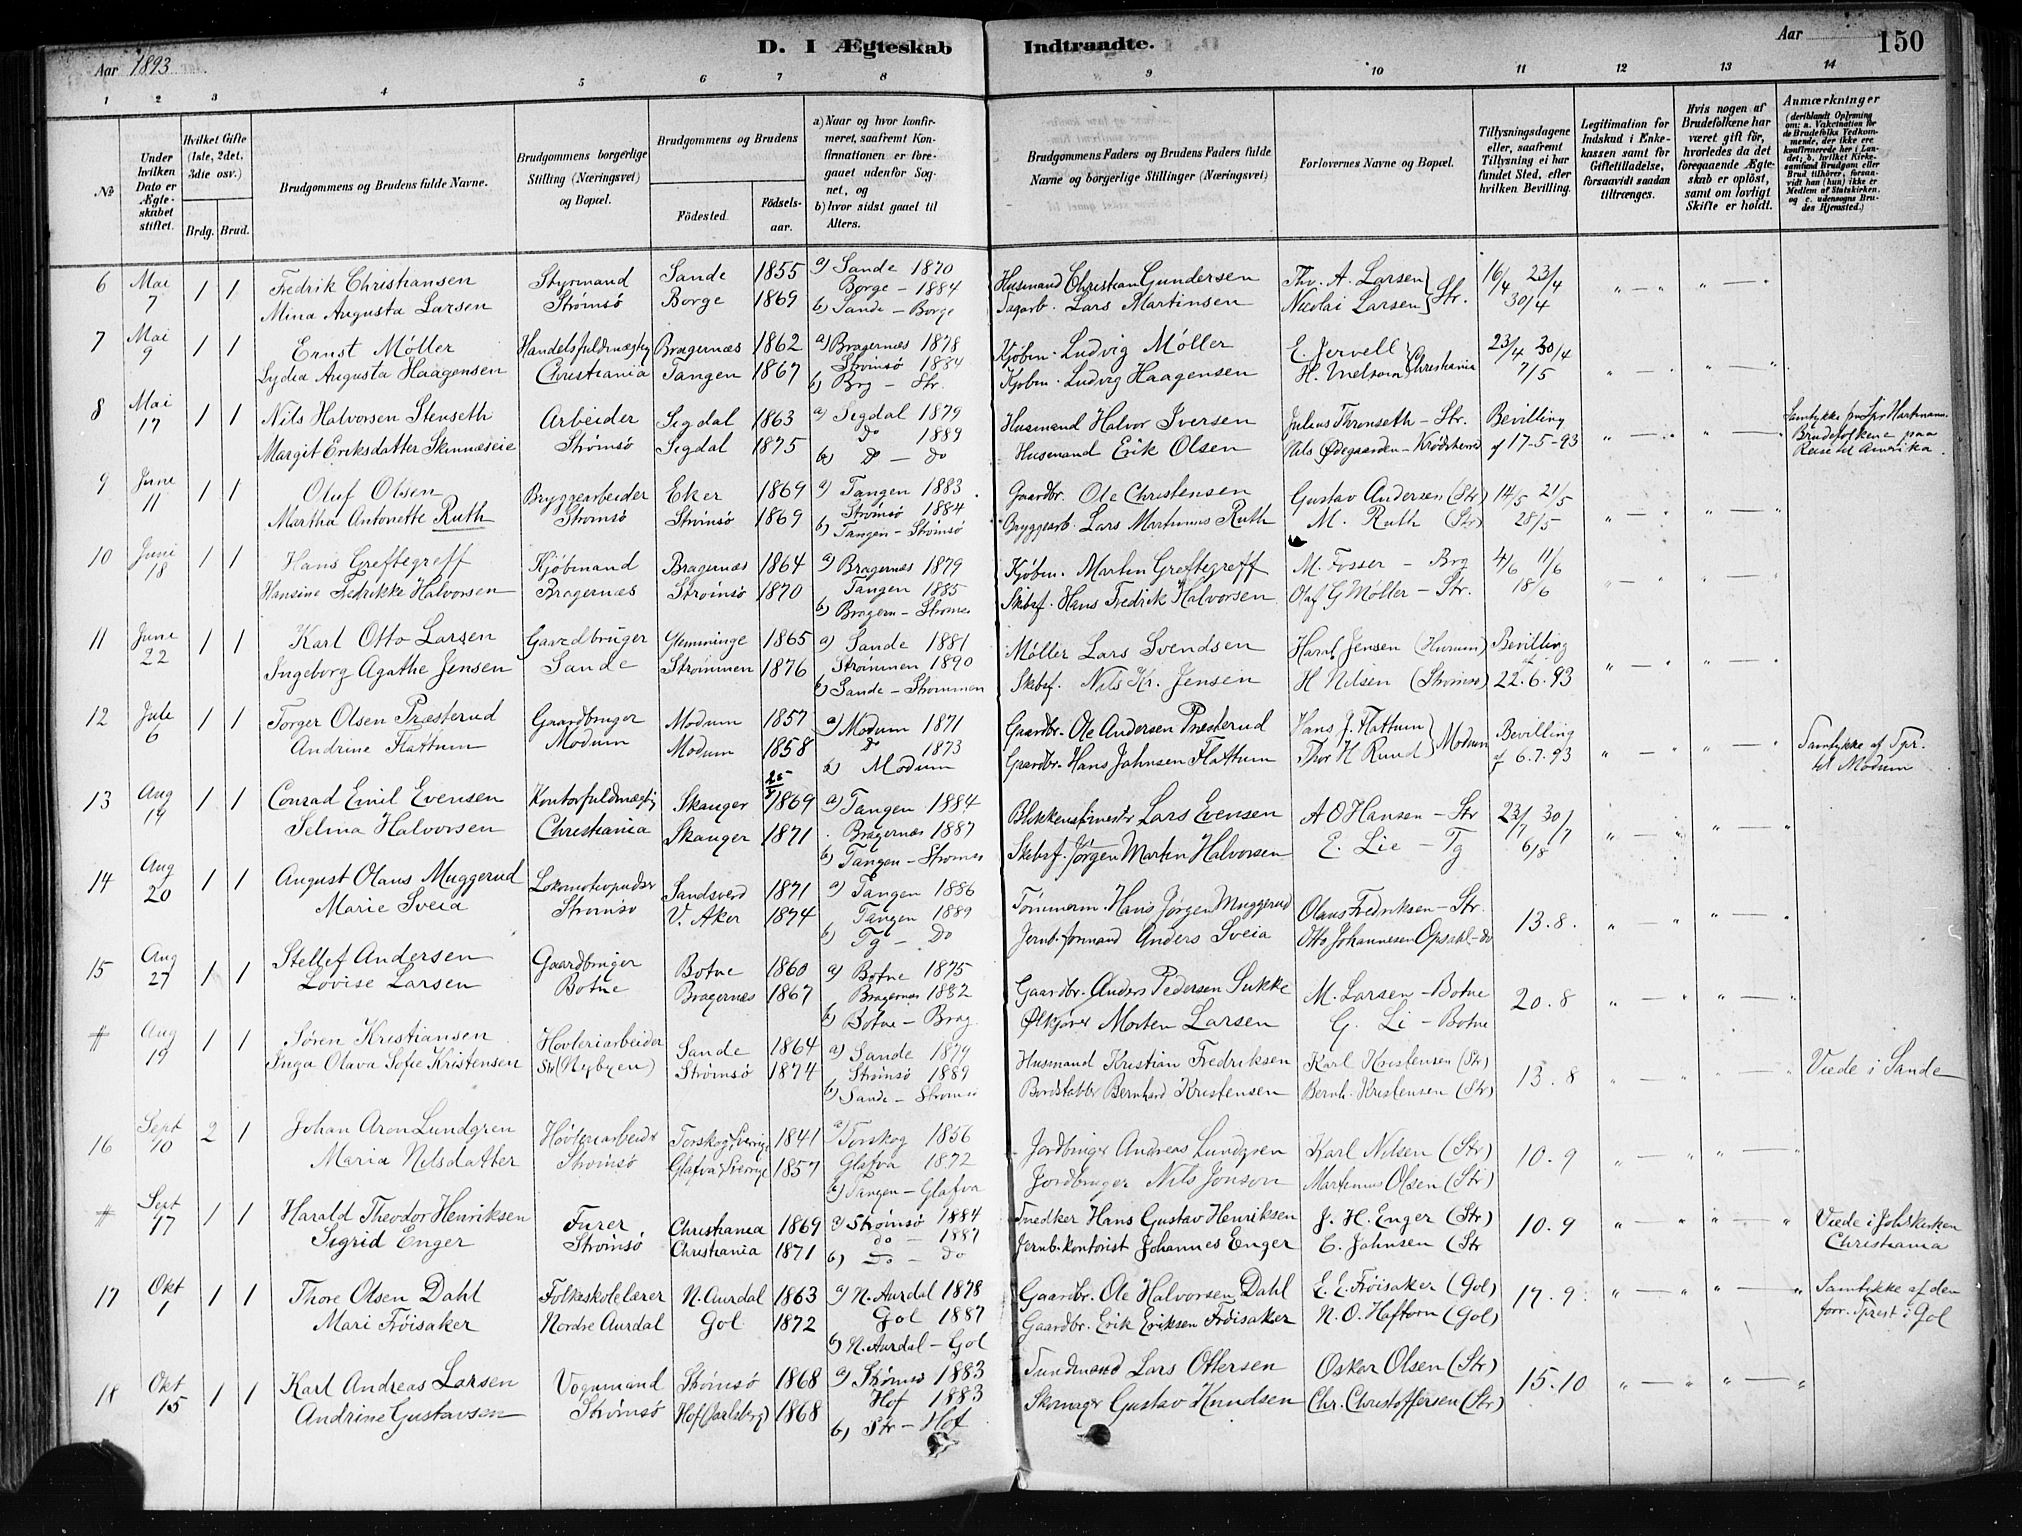 D. I Ægteskab Indtraadte.
Aar 1893
Aar 150
1 2 3 4 5 6 7 8 9 10 11 12 13 14
№
Under hvilken Dato er Ægteskabet stiftet.
Hvilket Gifte (1ste, 2det, 3die osv.)
Brdg. Brud.
Brudgommens og Brudens fulde Navne.
Brudgommens borgerlige Stilling (Næringsvei) og Bopæl.
Brudgommens og Brudens
Fødested
Fødselsaar.
a) Naar og hvor konfirmeret, saafremt Konfirmationen er foregaaet udenfor Sognet, og
b) hvor sidst gaaet til Alters.
Brudgommens Faders og Brudens Faders fulde Navne og borgerlige Stillinger (Næringsvei)
Forlovernes Navne og Bopæl.
Tillysningsdagene eller, saafremt Tillysning ei har fundet Sted, efter hvilken Bevilling.
Legitimation for Indskud i Enkekassen samt for Giftetilladelse, forsaavidt saadan tiltrænges.
Hvis nogen af Brudefolkene har været gift før, hvorledes da det foregaaende Ægteskab er opløst, samt om lovligt Skifte er holdt.
Anmærkninger
6 Mai 7 1 1 Fredrik Christiansen Styrmand Sande 1855 a) Sande 1870 Husmand Christian Gundersen Thv. A. Larsen 16/4 23/4
Mina Augusta Larsen Strømsø Borge 1869 Borge - 1884 b) Sande - Borge Lars Martinsen Nicolai Larsen Str. 30/4
7 Mai 9 1 1 Ernst Møller Handelsfuldmægtig Bragernæs 1862 a) Bragernæs 1878 Kjøbm. Ludvig Møller E. Jervell 23/4 30/4
Lydia Augusta Haagensen Christiania Tangen 1867 Strømsø 1884 b) Brg - Str. Kjøbm. Ludvig Haagensen Christiania 7/5
8 Mai 17 1 1 Nils Halvorsen Stenseth Arbeider Sigdal 1863 a) Sigdal 1879 Husmand Halvor Iversen Julius Thronseth - Str. Bevilling
Margit Eriksdatter Skinnæseie Strømsø Sigdal 1875 Do 1889 b) Do - Do Husmand Erik Olsen Nils Ødegaarden - af 17-5-93 Brudefolkene paa Reise til Amerika.
9 Juni 11 1 1 Oluf Olsen Bryggearbeider Eker 1869 a) Tangen 1883 Gaardbr. Ole Christensen Gustav Andersen (Str) 14/5 21/5
Martha Antonette Ruth Strømsø Strømsø 1869 Strømsø 1884 b) Tangen - Strømsø Bryggearb. Lars Martinius Ruth M. Ruth (Str) 28/5
10 Juni 18 1 1 Hans Greftegreff Kjøbmand Bragernæs 1864 a) Bragernæs 1879 Kjøbm. Martin Greftegreff M. Fosser - Brg 4/6 11/6
Hansine Fredrikke Halvorsen Bragernæs Strømsø 1870 Tangen 1885 b) Bragern - Strømsø Skibsf. Hans Fredrik Halvorsen Olaf G Møller - Str. 18/6
11 Juni 22 1 1 Karl Otto Larsen Gaardbruger Glemminge 1865 a) Sande 1881 Møller Lars Svendsen Jensen (Hurum) Bevilling
Ingeborg Agathe Jensen Sande Strømmen 1876 Strømmen 1890 b) Sande - Strommen Skibsf. Nils Kr. Jensen H Nilsen (Strømsø) 22.6.93
12 Juli 6 1 1 Torger Olsen Præsterud Gaardbruger Modum 1857 a) Modum 1871 Gaardbr. Ole Andersen Præsterud Hans J. Flattum Bevilling
Andrine Flattum Modum Modum 1858 Do 1873 b) Modum Gaardbr. Hans Johnsen Flattum Thor H Rund Modum af 6.7.93 Samtykke af Spr. til Modum
13 Aug 19 1 1 Conrad Emil Evensen Kontorfuldmægtig Skauger 1869 a) Tangen 1884 Lars Evensen A O Hansen - Str 23/7 30/7
Selma Halvorsen Christiania Skauger 1871 Bragernæs 1887 b) Tangen - Strømsø Skibsf. Jørgen Martin Halvorsen E. Lie - Tg 6/8
14 Aug 20 1 1 August Olaus Muggerud Lokomotivpudser Sandsverd 1871 a) Tangen 1886 Tømmerm. Hans Jørgen Muggerud Olaus Fredriksen - Str. 13.8.
Marie Sveia Strømsø V. Aker 1874 Tangen 1889 b) Tg - Do Jernb. formand Anders Sveia Otto Johannesen Opsahl - do
15 Aug 27 1 1 Stellef Andersen Gaardbruger Botne 1860 a) Botne 1875 Gaardbr. Anders Pedersen Sukke M. Larsen - Botne 20.8
Lovise Larsen Botne Bragernæs 1867 Bragernes 1882 b) Botne - Brag. Ølkjører Morten Larsen G. Li - Botne
# Aug 19 1 1 Søren Kristiansen Høvleriarbeider Sande 1864 a) Sande 1879 Husmand Kristian Fredriksen Karl Kristensen (Str) 13.8 Viede i Sande
Inga Olava Sofie Kristensen Str (Nybyen) Strømsø 1874 Strømsø 1889 b) Sande - Strømsø Bordstabler Bernhard Kristensen Bernh. Kristensen (Str)
16 Sept 10 2 1 Johan Aron Lundgren Høvleriarbeider Torskog, Sverrig 1841 a) Torskog 1856 Jordbruger Andreas Lundgren Karl Nilsen (Str) 10.9
Maria Nilsdatter Strømsø Glafva, Sverrige 1857 Glafva 1872 b) Tangen - Glafva Jordbruger Nils Jonson Martinius Olsen (Str)
# Sept 17 1 1 Harald Theodor Henriksen Furer Christiania 1869 a) Strømsø 1884 Snedker Hans Gustav Henriksen J. H. Enger (Str) 10.9 Viede i Johskirken
Sigrid Enger Strømsø Christiania 1871 do - 1887 b) Do - Do Jernb. kontorist Johannes Enger C. Johnsen (Str Christiania
17 Okt 1 1 1 Thore Olsen Dahl Folkeskolelærer N. Aurdal 1863 a) N. Aurdal 1878 Gaardbr. Ole Halvorsen Dahl E. E. Frøisaker (Gol) 17.9. Samtykke af den
Mari Frøisaker Nordre Aurdal Gol 1872 Gol 1887 b) N. Aurdal - Gol Gaardbr. Erik Eriksen Frøisaker N. O. Haftorn (Gol) forr. Sprest i Gol
18 Okt 15 1 1 Karl Andreas Larsen Vognmand Strømsø 1868 a) Strømsø 1883 Sundmand Lars Ottersen Oskar Olsen (Str) 15.10
Andrine Gustavsen Strømsø Hof (Jarlsberg) 1868 Hof 1883 b) Str - Hof Skomager Gustav Knudsen Chr. Christoffersen (Str)